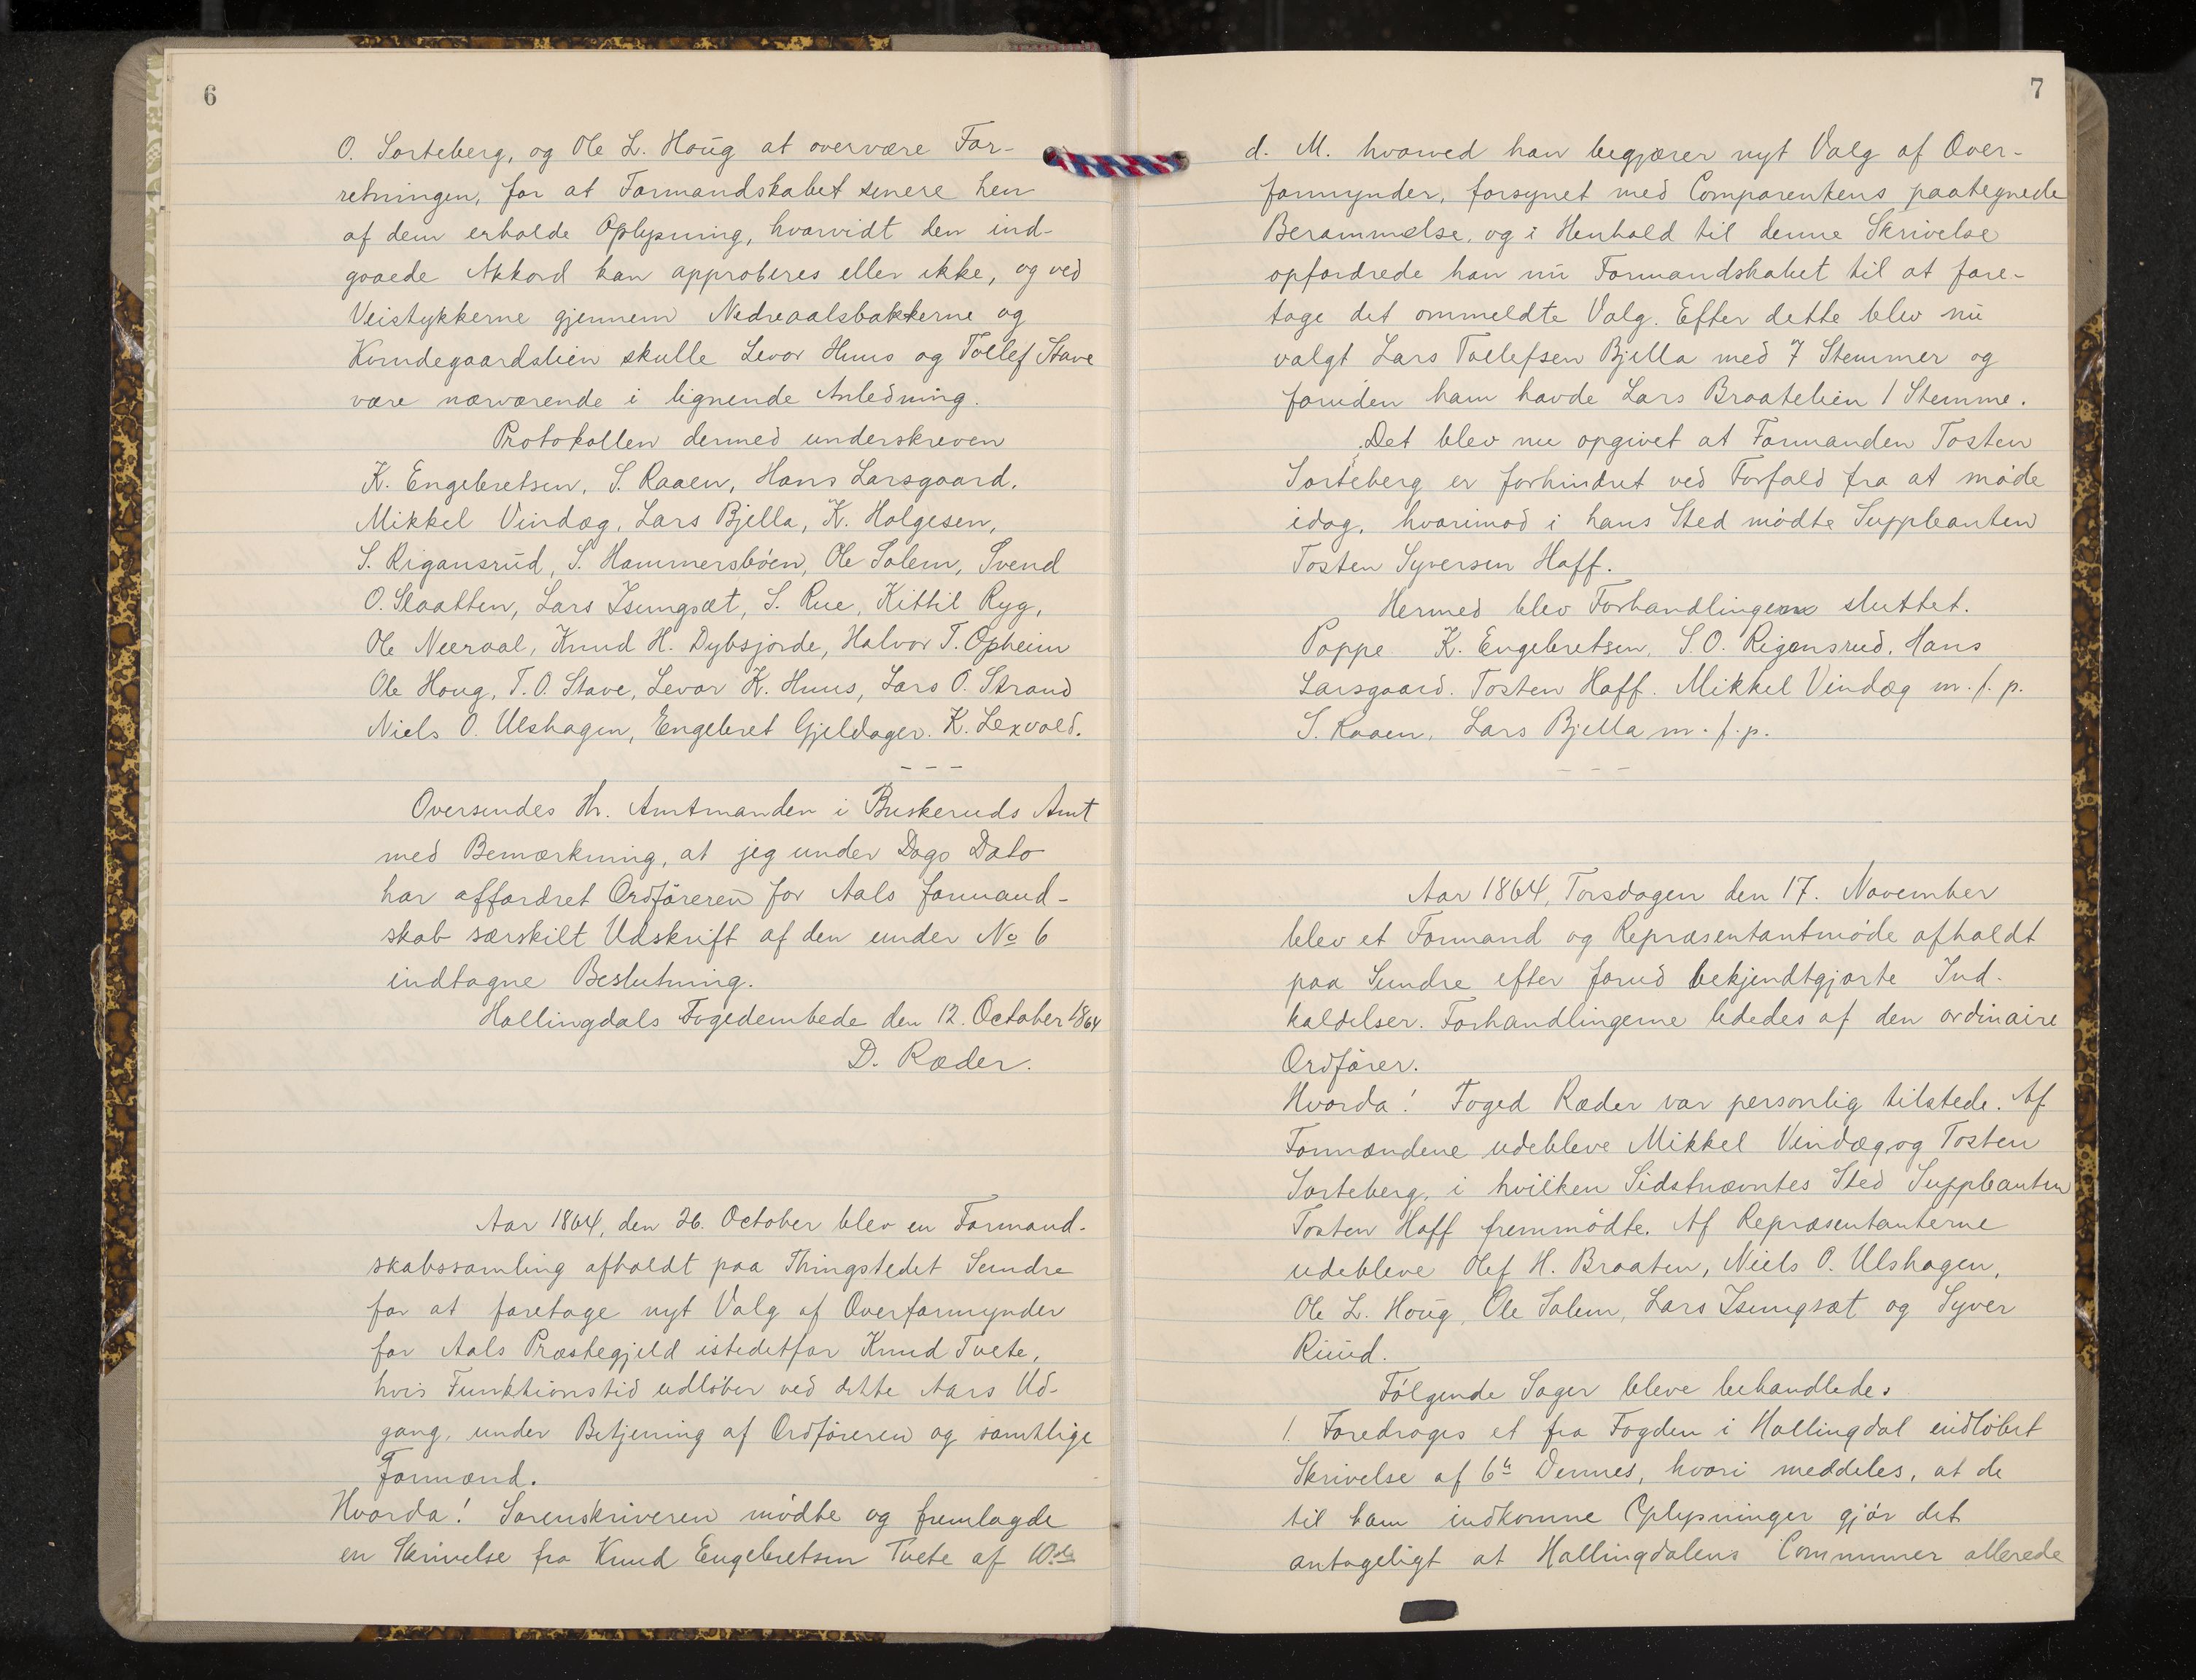 6
O. Sorteberg, og Ole L. Houg at overvære For-
retningen, for at Formandskabet senere hen
af dem erholde Oplysning, hvorvidt den ind-
gaaede Akkord kan approberes eller ikke, og ved
Veistykkerne gjennem Nedreaalsbakkerne og
Kvindegaardslien skulle Levor Huus og Tollef Stave
være nærværende i lignende Anledning.
Protokollen dermed underskreven
K. Engebretsen, S. Raaen, Hans Larsgaard,
Mikkel Vindæg, Lars Bjella, K. Holgesen,
S. Rigansrud, S. Hammersbøen, Ole Solem, Svend
O. Slaatten, Lars Isungsæt, S. Rue, Kittil Ryg,
Ole Neeraal, Knud H. Dybsjorde, Halvor T. Opheim
Ole Houg, T. O. Stave, Levor K. Huus, Lars O. Strand
Niels O. Ulshagen, Engebret Gjeldager. K. Lexvold.
- - -
Oversendes Hr. Amtmanden i Buskeruds Amt
med Bemærkning, at jeg under Dags Dato
har affordret Ordføreren for Aals formand-
skab særskilt Udskrift af den under No 6
indtagne Beslutning.
Hallingdals Fogedembede den 12. October 1864
D. Ræder.
Aar 1864, den 26. October blev en Formand-
skabssamling afholdt paa Thingstedet Sundre
for at foretage nyt Valg af Overformynder
for Aals Præstegjeld istedetfor Knud Tvete,
hvis Funktionstid udløber ved dette Aars Ud-
gang, under Betjening af Ordføreren og samtlige
Formænd.
Hvorda! Sorenskriveren mødte og fremlagde
en Skrivelse fra Knud Engebretsen Tvete af 10de
7
d. M. hvorved han begjærer nyt Valg af Over-
formynder, forsynet med Comparentens paategnede
Berammelse, og i Henhold til denne Skrivelse
opfordrede han nu Formandskabet til at fore-
tage det ommeldte Valg. Efter dette blev nu
valgt Lars Tollefsen Bjella med 7 Stemmer og
foruden ham havde Lars Braatelien 1 Stemme.
Det blev nu opgivet at Formanden Tosten
Sorteberg er forhindret ved Forfald fra at møde
idag, hvorimod i hans Sted mødte Suppleanten
Tosten Syversen Hoff.
Hermed blev Forhandlingen sluttet.
Poppe K. Engebretsen, S. O. Rigansrud, Hans
Larsgaard. Tosten Hoff. Mikkel Vindæg m. f. p.
S. Raaen, Lars Bjella m. f. p.
- - -
Aar 1864, Torsdagen den 17. November
blev et Formand og Repræsentantmøde afholdt
paa Sundre efter forud bekjendtgjorte Ind-
kaldelser. Forhandlingerne lededes af den ordinaire
Ordfører.
Hvorda! Foged Ræder var personlig tilstede. Af
Formændene udebleve Mikkel Vindæg og Tosten
Sorteberg, i hvilken Sidstnævntes Sted Suppleanten
Tosten Hoff fremmødte. Af Repræsentanterne
udebleve Olef H. Braaten, Niels O. Ulshagen,
Ole L. Houg, Ole Solem, Lars Isungsæt og Syver
Ruud.
Følgende Sager bleve behandlede.
1. Foredroges et fra Fogden i Hallingdal indløbet
Skrivelse af 6te Dennes, hvori meddeles, at de
til ham indkomne Oplysninger gjør det
antageligt at Hallingdalens Communer allerede